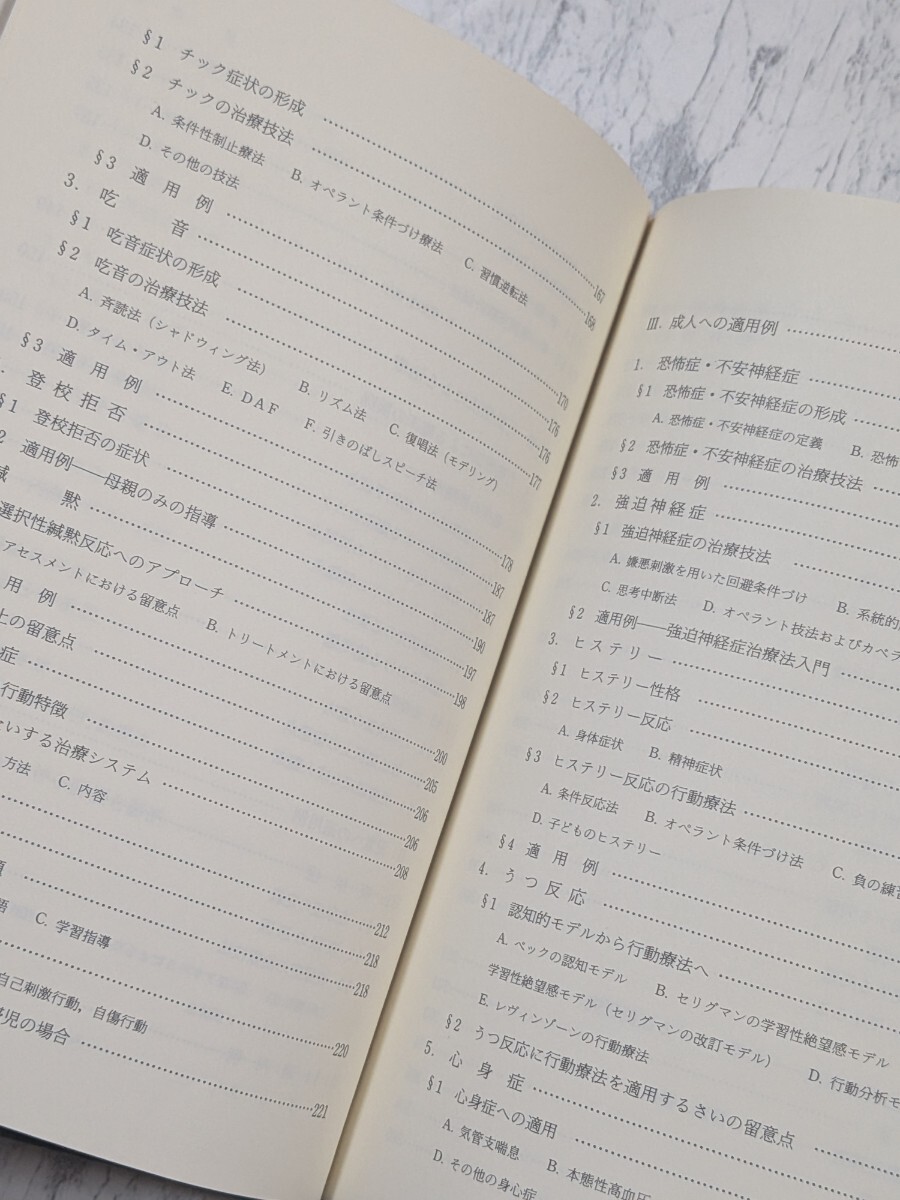 §1 チック症状の形成 ……167
§2 チックの治療技法 ……168
A. 条件性制止療法 B. オペラント条件づけ療法 C. 習慣逆転法
D. その他の技法
§3 適用例 ……170
3. 吃音 ……176
§1 吃音症状の形成 ……176
§2 吃音の治療技法 ……177
A. 斉読法（シャドウィング法） B. リズム法 C. 復唱法（モデリング）
D. タイム・アウト法 E. DAF F. 引きのばしスピーチ法
§3 適用例 ……178
登校拒否 ……187
§1 登校拒否の症状 ……187
2 適用例――母親のみの指導 ……190
緘黙 ……197
選択性緘黙反応へのアプローチ ……198
アセスメントにおける留意点 B. トリートメントにおける留意点
用例 ……200
上の留意点 ……205
症 ……206
行動特徴 ……206
たいする治療システム ……208
方法 C. 内容
……212
……218
語 C. 学習指導
……218
自己刺激行動，自傷行動
……220
児の場合 ……221
III. 成人への適用例 ……
1. 恐怖症・不安神経症 ……
§1 恐怖症・不安神経症の形成 ……
A. 恐怖症・不安神経症の定義 B. 恐怖
§2 恐怖症・不安神経症の治療技法 ……
§3 適用例 ……
2. 強迫神経症 ……
§1 強迫神経症の治療技法 ……
A. 嫌悪刺激を用いた回避条件づけ B. 系統的
C. 思考中断法 D. オペラント技法およびカベラ
§2 適用例――強迫神経症治療法入門 ……
3. ヒステリー ……
§1 ヒステリー性格 ……
§2 ヒステリー反応 ……
A. 身体症状 B. 精神症状
§3 ヒステリー反応の行動療法 ……
A. 条件反応法 B. オペラント条件づけ法 C. 負の練習
D. 子どものヒステリー
§4 適用例 ……
4. うつ反応 ……
§1 認知的モデルから行動療法へ ……
A. ベックの認知モデル B. セリグマンの学習性絶望感モデル
学習性絶望感モデル（セリグマンの改訂モデル） D. 行動分析モ
E. レヴィンゾーンの行動療法
§2 うつ反応に行動療法を適用するさいの留意点 ……
5. 心身症 ……
§1 心身症への適用 ……
A. 気管支喘息 B. 本態性高血圧
D. その他の身心症